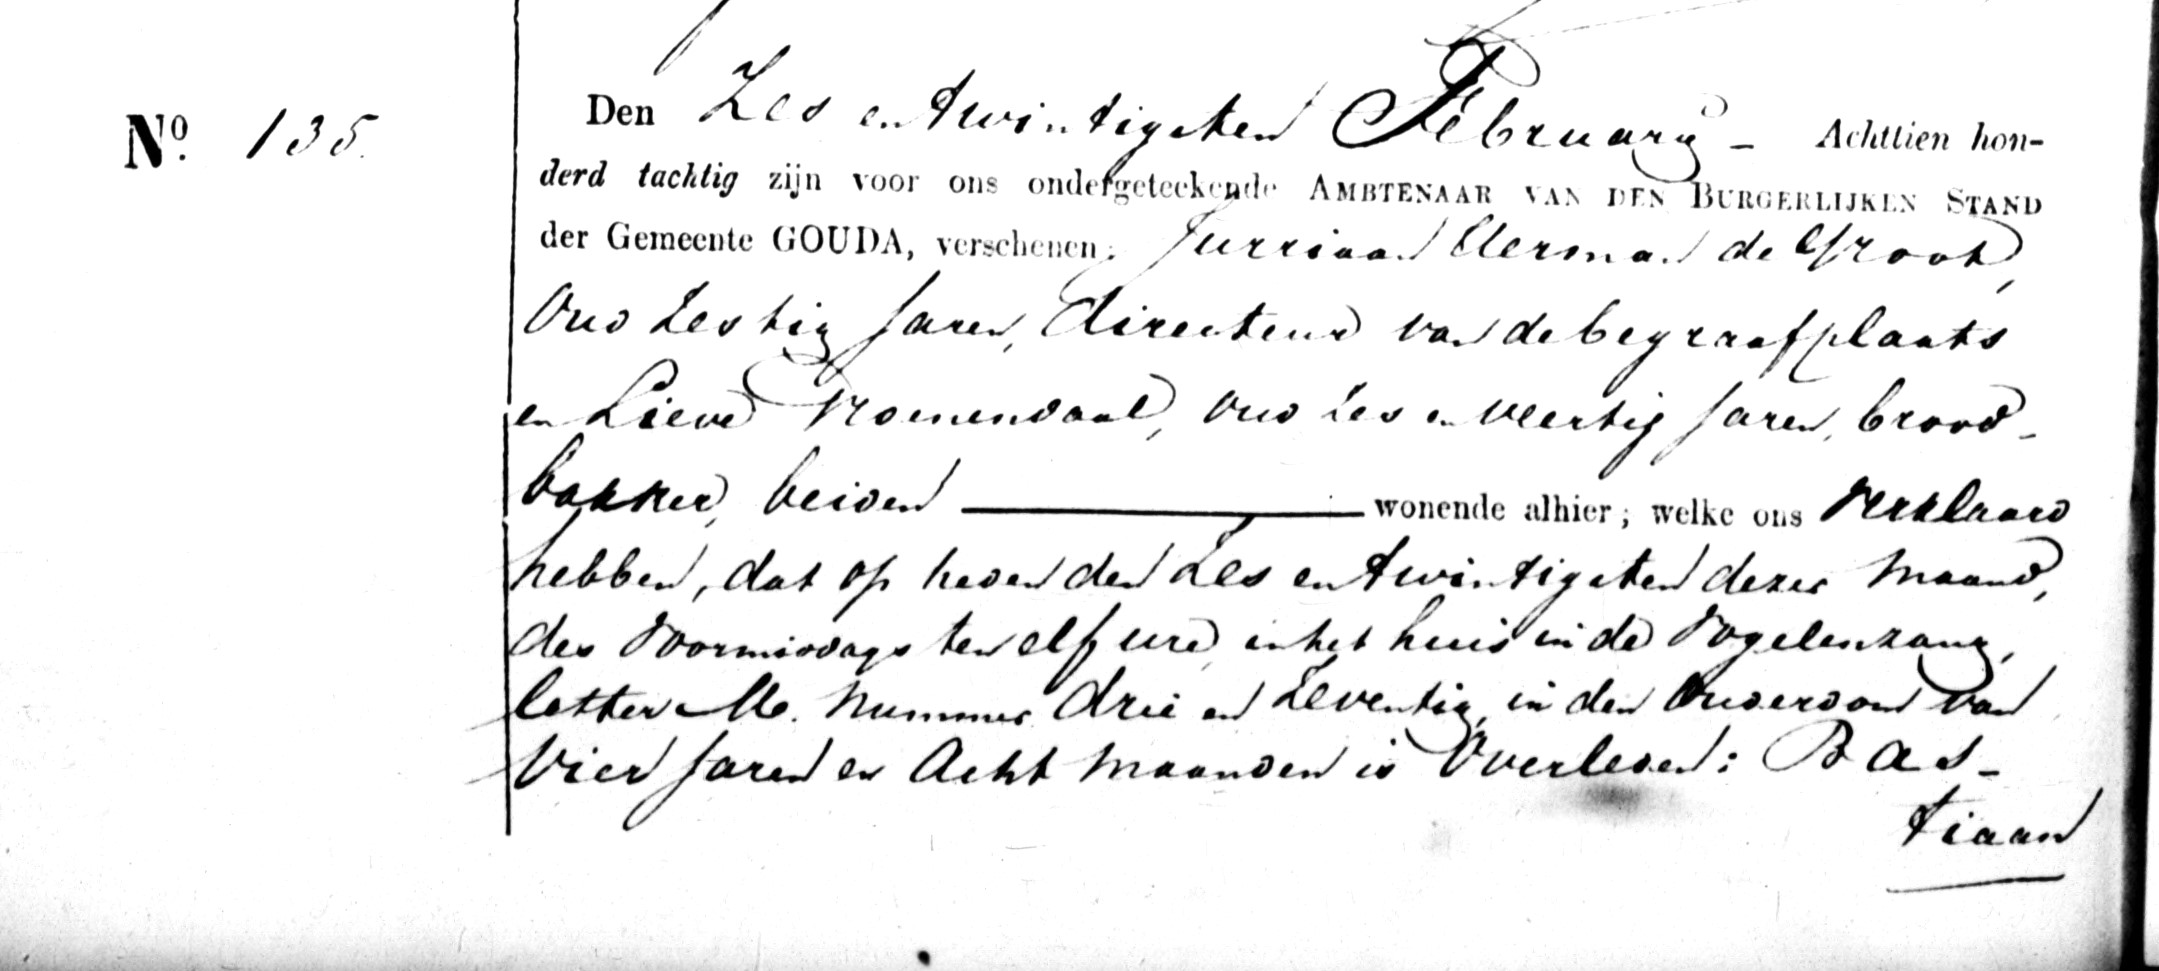 No. 135.
Den Zes en twintigsten February - Achttien hon-
derd tachtig zijn voor ons ondergeteekende AMBTENAAR VAN DEN BURGERLIJKEN STAND
der Gemeente GOUDA, verschenen: Jurriaan Herman de Groot,
oud Zestig jaren, directeur van de begraafplaats
en Lieve Groenendaal, oud Zes en veertig jaren, brood-
bakker, beiden wonende alhier; welke ons verklaard
hebben, dat op heden den Zes en twintigsten dezer maand,
des voormiddags ten elf ure, in het huis in de Vogelenzang,
letter M. nummer drie en Zeventig, in den ouderdom van
Vier jaren en Acht maanden is overleden: Bas-
tiaan